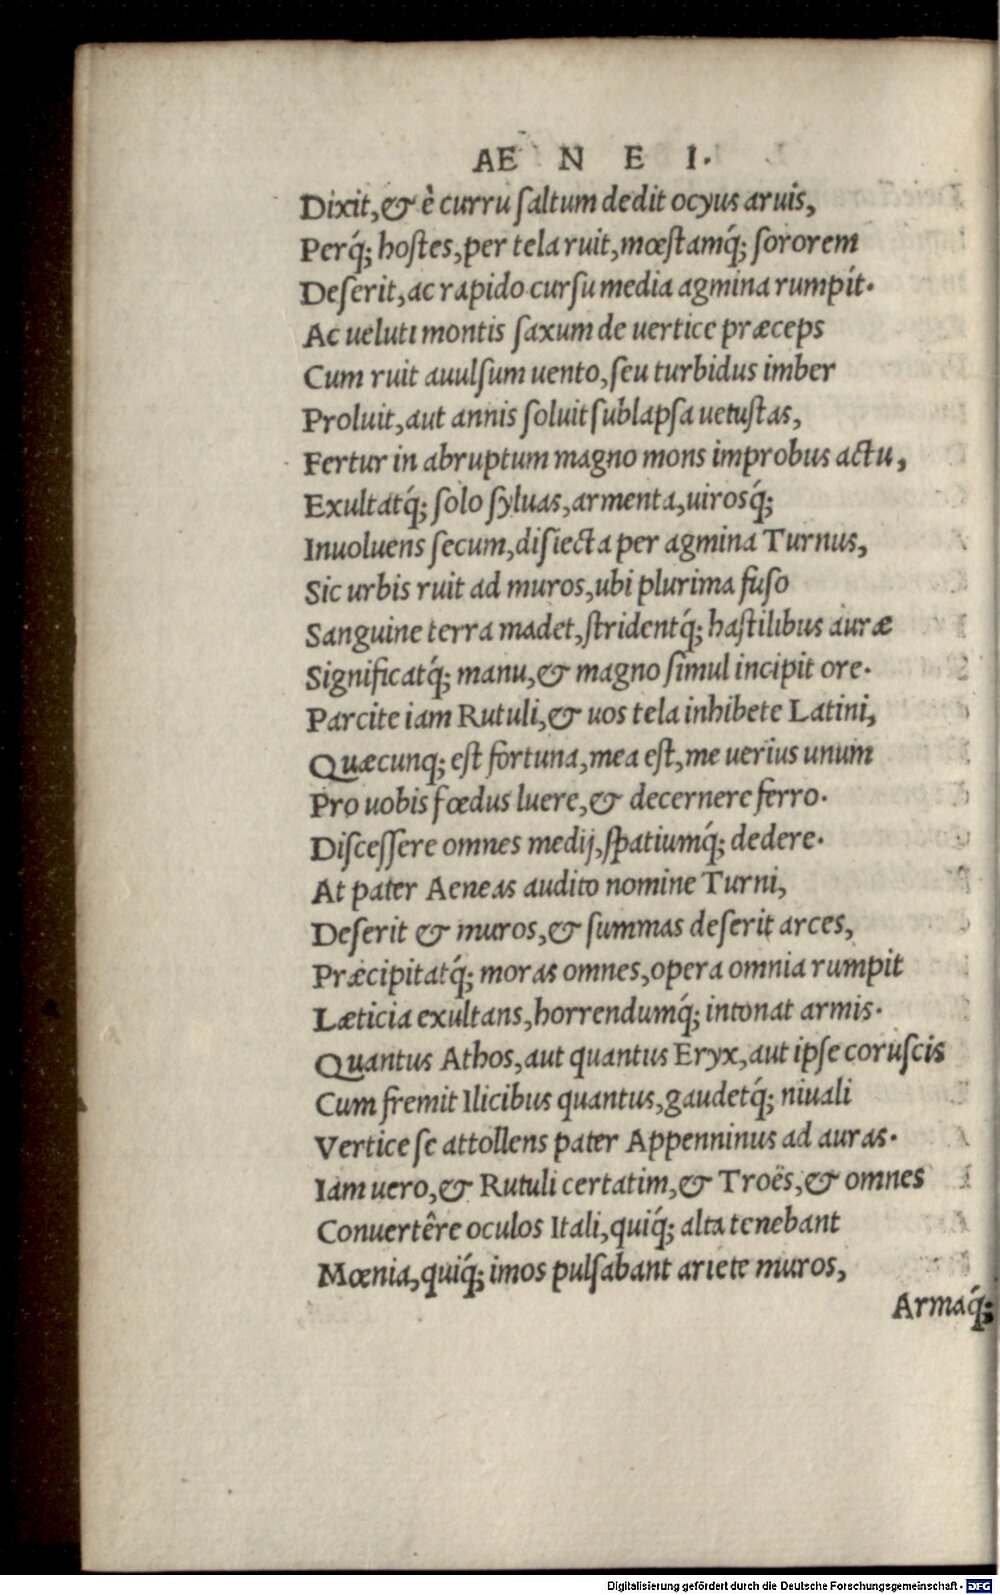 AE N E I.
Dixit,& è curru ſaltum dedit ocyus aruis,
Perq́; hoſtes,per tela ruit,mœſtamq́; ſororem
Deſerit,ac rapido curſu media agmina rumpit.
Ac ueluti montis ſaxum de uertice præceps
Cum ruit auulſum uento,ſeu turbidus imber
Proluit,aut annis ſoluit ſublapſa uetuſtas,
Fertur in abruptum magno mons improbus actu,
Exultatq́; ſolo ſyluas,armenta,uirosq́;
Inuoluens ſecum,diſiecta per agmina Turnus,
Sic urbis ruit ad muros,ubi plurima fuſo
Sanguine terra madet,ſtridentq́; haſtilibus auræ
Significatq́; manu,& magno ſimul incipit ore.
Parcite iam Rutuli,& uos tela inhibete Latini,
Quæcunq; eſt fortuna,mea eſt,me uerius unum
Pro uobis fœdus luere,& decernere ferro.
Diſceſſere omnes medij,ſpatiumq́; dedere.
At pater Aeneas audito nomine Turni,
Deſerit & muros,& ſummas deſerit arces,
Præcipitatq́; moras omnes,opera omnia rumpit
Læticia exultans,horrendumq́; intonat armis.
Quantus Athos,aut quantus Eryx,aut ipſe coruſcis
Cum fremit Ilicibus quantus,gaudetq́; niuali
Vertice ſe attollens pater Appenninus ad auras.
Iam uero,& Rutuli certatim,& Troës,& omnes
Conuertêre oculos Itali,quiq́; alta tenebant
Mœnia,quiq́; imos pulſabant ariete muros,
Armaq́;
Digitalisierung gefördert durch die Deutsche Forschungsgemeinschaft - DFG